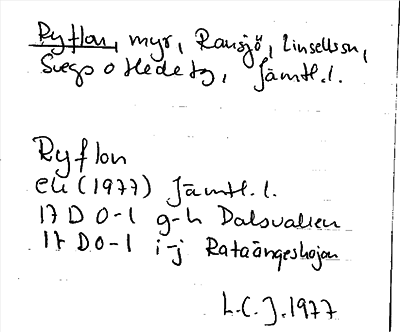 Ryflon, myr, Ransjö, Linsellssn,
Svegs o Hedetg, Jämtl.l.
Ryflon
ek (1977) Jämtl.l.
17 D 0-1 g-h Dalsvallen
17 D 0-1 i-j Rataängeshojan
L.C.J. 1977